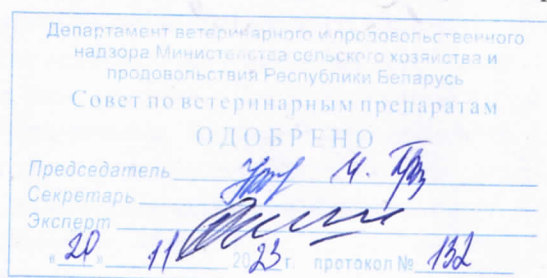 Департамент ветеринарного и продовольственного
надзора Министерства сельского хозяйства и
продовольствия Республики Беларусь
Совет по ветеринарным препаратам
ОДОБРЕНО
Председатель
Секретарь
Эксперт
«20» 11 2023 г. протокол № 132